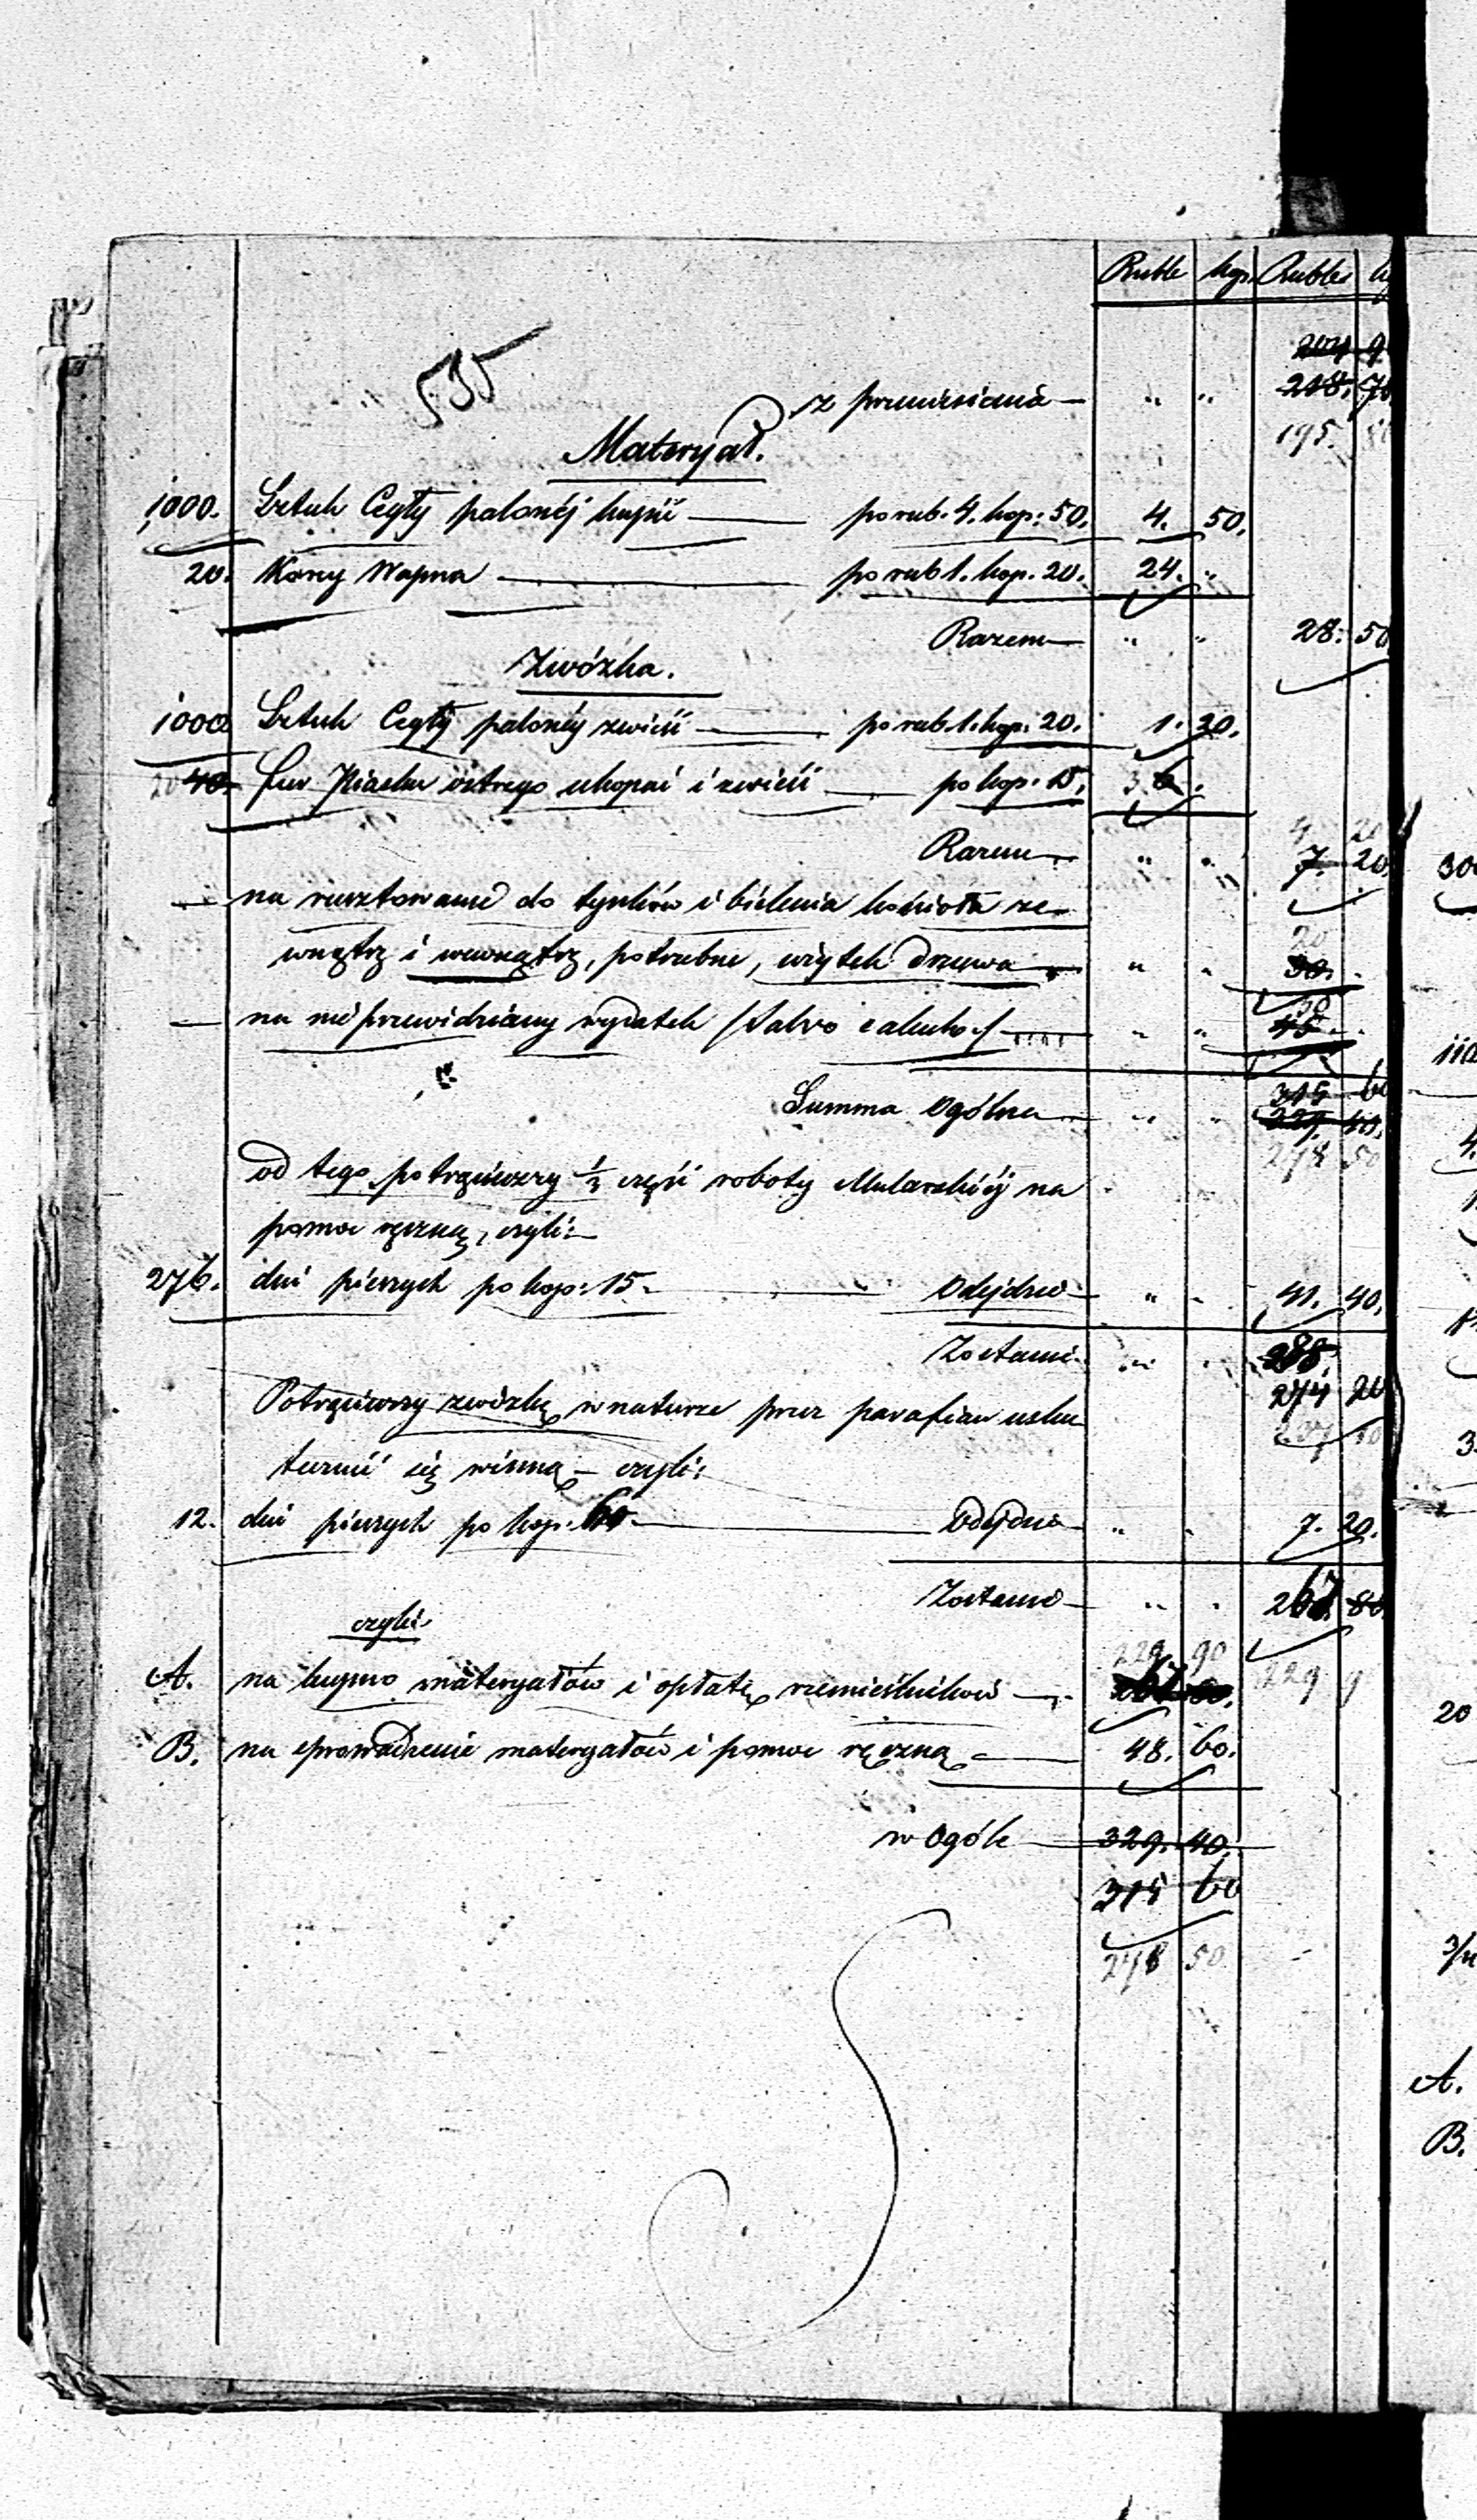 Ruble kop. Ruble k
535
204 9
z przeniesienia — " " 218. 70
195. 80
Materyał.
1000. Sztuk Cegły palonéj kupić — po rub. 4. kop: 50. 4. 50.
20. Korcy Wapna — po rub 1. kop. 20. 24. "
Razem — " " 28. 50
Zwózka.
1000 Sztuk Cegły palonéj zwieść — po rub. 1. kop: 20. 1. 20.
20 40. fur Piasku ostrego ukopać i zwieść — po kop. 15. 3 6.
4 20
Razem — " " 7. 20.
— na rusztowanie do tynków i bielenia kościoła ze-
20
wnątrz i wewnątrz, potrzebne, użytek drzewa — " " 30.
30
— na nieprzewidziany wydatek /Salvo calculo/ — " " 45.
315 60
Summa Ogólna — " " 329. 40.
278 50
od tego potrąciwszy ½ części roboty Mularskiéj na
pomoc ręczną, czyli:
276. dni pieszych po kop: 15. — Odejdzie — " " 41. 40.
Zostanie — " " 288
274 20
Potrąciwszy zwózkę w naturze przez parafian usku
237 10
tecznić się winną — czyli:
12. dni pieszych po kop. 60. — Odejdzie — " " 7. 20.
Zostanie — " " 267. 80.
czyli
229 90
A. na kupno materyałów i opłatę rzemieślników — 267 80. 229 9
B. na sprowadzenie materyałów i pomoc ręczną — 48. 60.
w Ogóle — 329. 40.
315 60
278 50